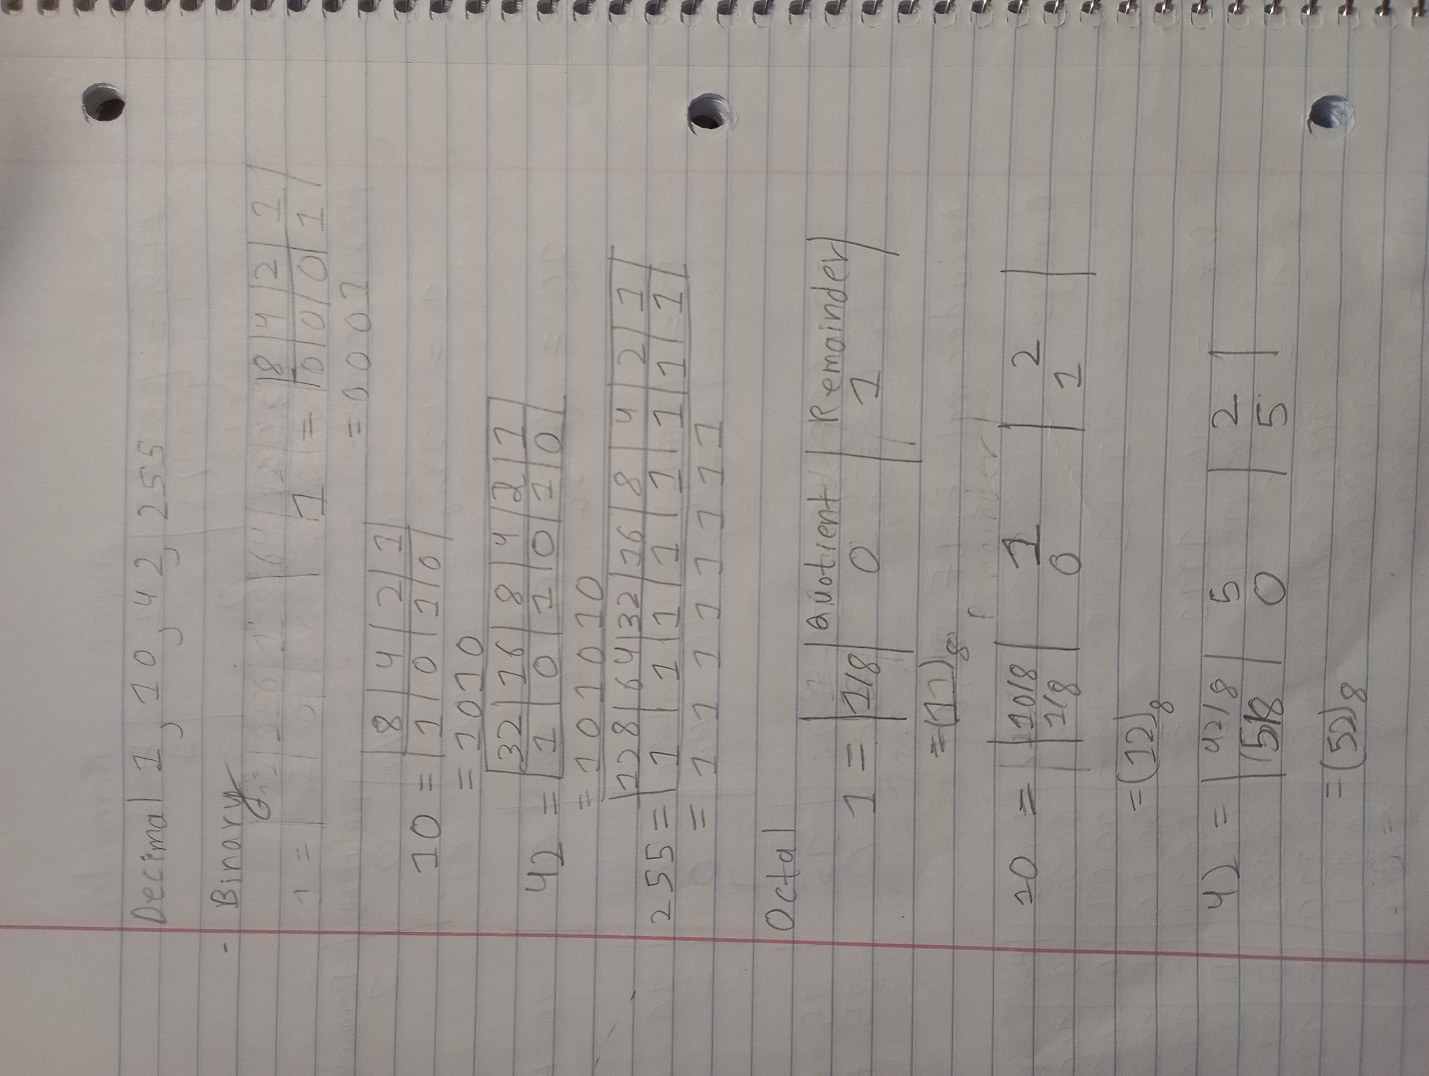 Decimal 1, 10, 42, 255
- Binary
1 =
| 8 | 4 | 2 | 1
1 = | 0 | 0 | 0 | 1 |
= 0001
| 8 | 4 | 2 | 1
10 = | 1 | 0 | 1 | 0 |
= 1010
| 32 | 16 | 8 | 4 | 2 | 1 |
42 = | 1 | 0 | 1 | 0 | 1 | 0 |
= 101010
| 128 | 64 | 32 | 16 | 8 | 4 | 2 | 1 |
255 = | 1 | 1 | 1 | 1 | 1 | 1 | 1 | 1 |
= 1 1 1 1 1 1 1 1
Octal
| | Quotient | Remainder |
1 = | 1/8 | 0 | 1
= (11)8
10 = | 10/8 | 1 | 2 |
1/8 | 0 | 1
= (12)8
42 = | 42/8 | 5 | 2 |
| 5/8 | 0 | 5
= (52)8